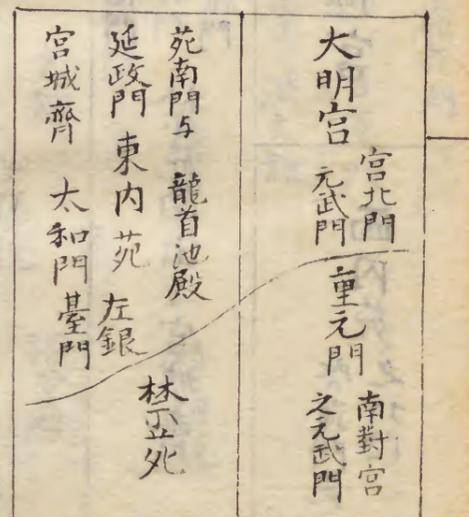 大明宮
宮北門
元武門
重元門
南對宮
之元武門
苑南門与 龍首池殿
延政門 東内苑 左銀
宮城齊 太和門 臺門
禁苑